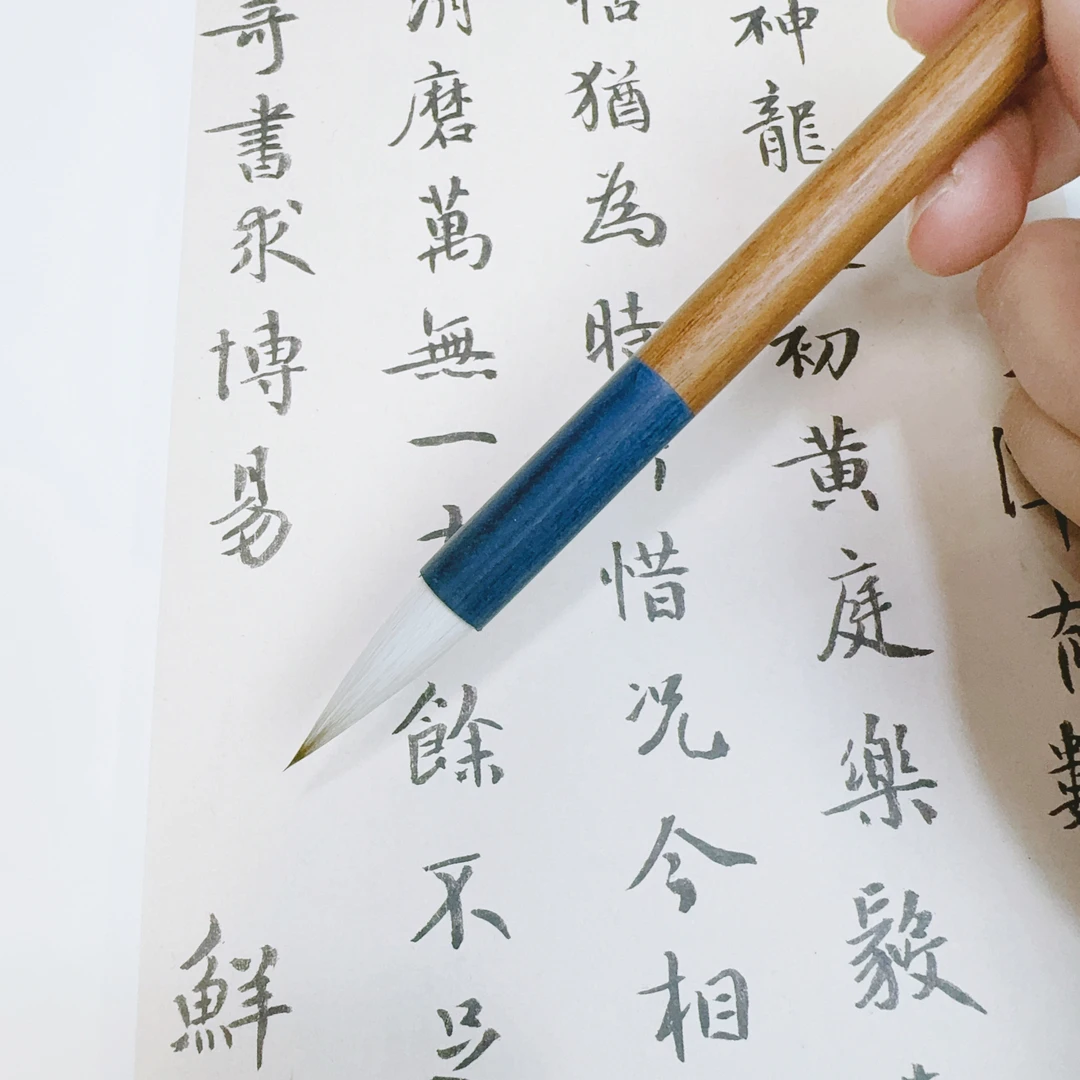 神龍初黃庭樂毅
猶為時惜況今相
消磨萬無一餘不
書求博易鮮